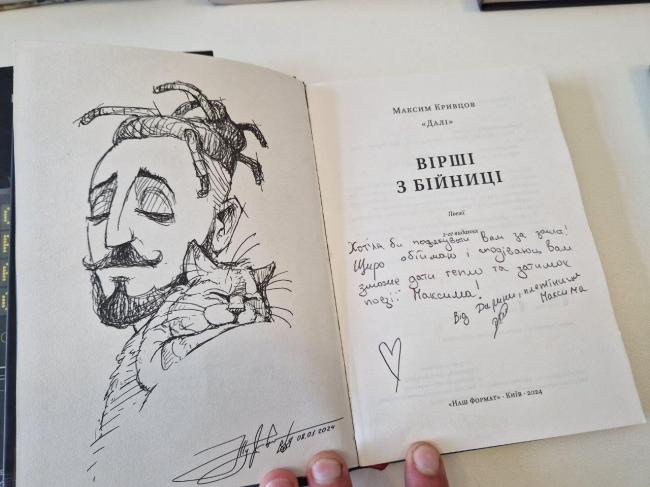 08.01.2024
Максим Кривцов
«Далі»
ВІРШІ
З БІЙНИЦІ
Поезії
2-ге видання
Хотіла би подякувати Вам за
Щиро обіймаю і сподіваюсь Вам
зможе дати тепло та затишок
поезії Максима!
Від Дарини, племінниці
Максима
«Наш Формат» · Київ · 2024